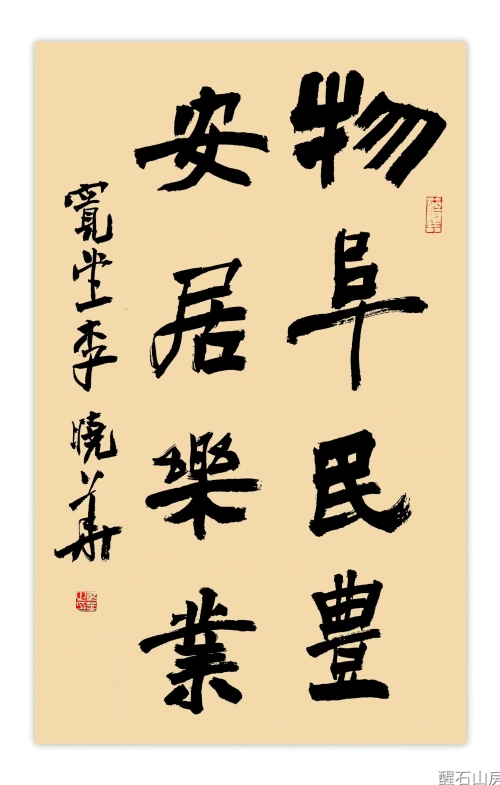 物阜民豊
安居樂業
寬堂李曉華
醒石山房